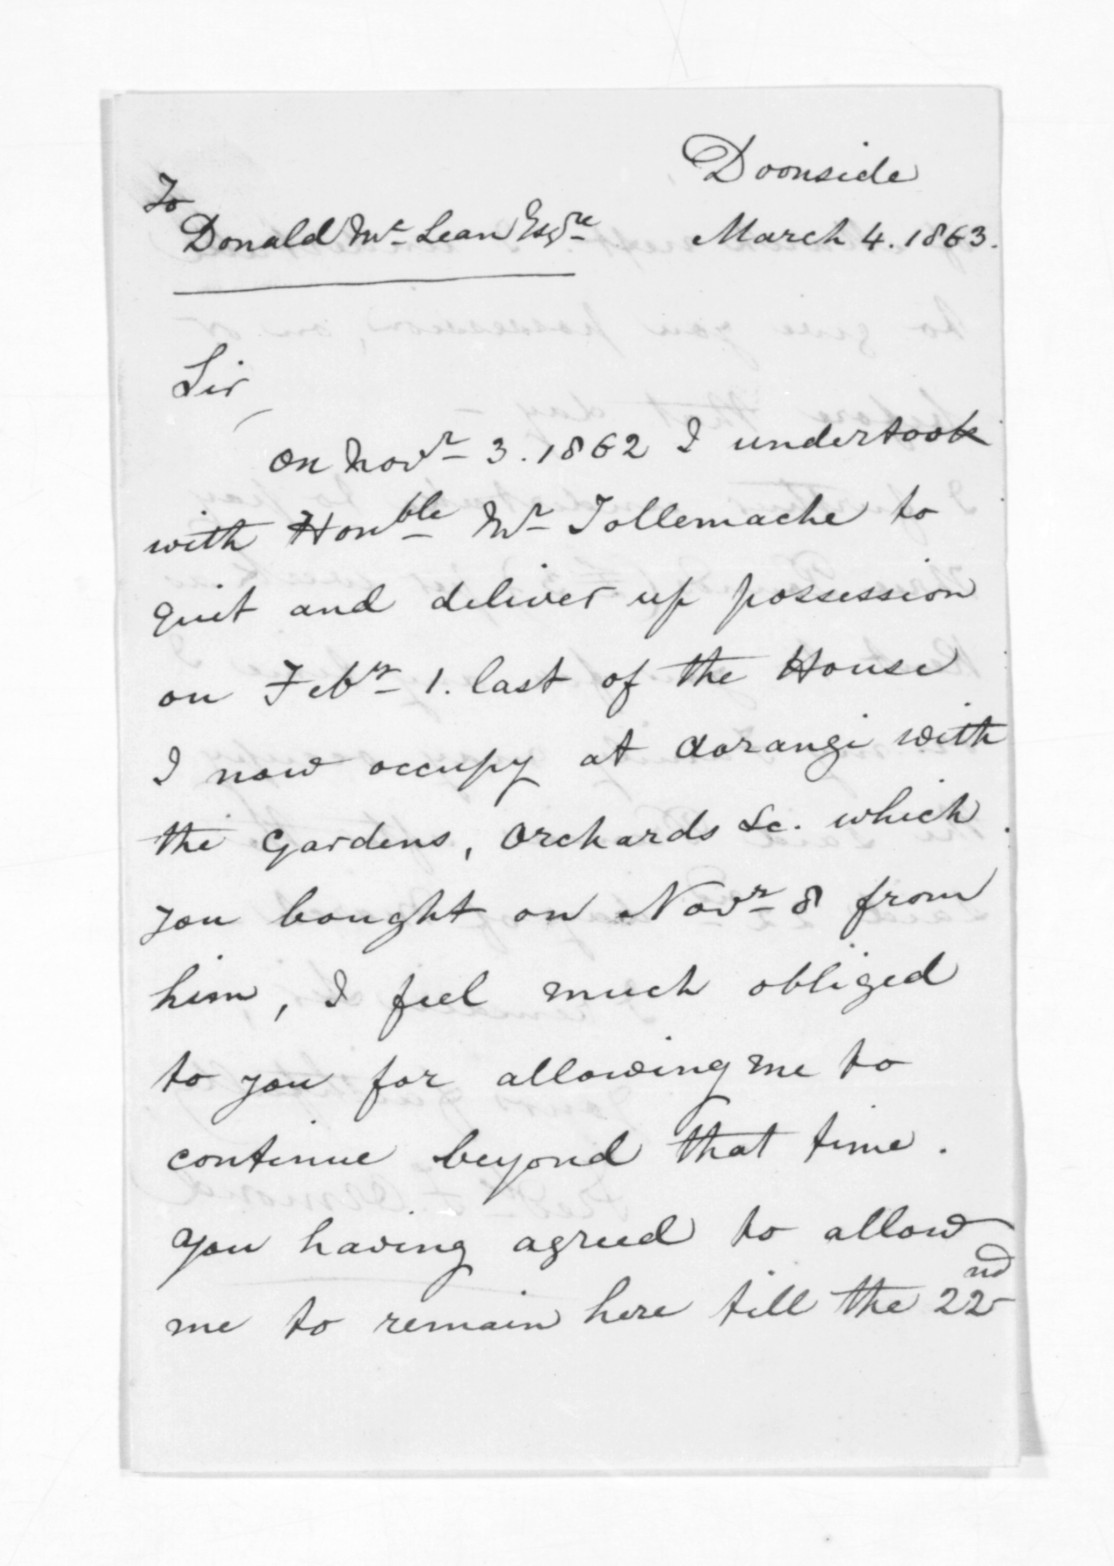 Doonside
To
Donald Mc Lean Esqre March 4. 1863.
Sir
On Novr 3. 1862 I undertook
with Honble Mr Tollemache to
quit and deliver up possession
on Febr 1. last of the House
I now occupy at Aorangi with
the Gardens, Orchards &c. which
you bought on Novr 8 from
him, I feel much obliged
to you for allowing me to
continue beyond that time.
You having agreed to allow
me to remain here till the 22nd